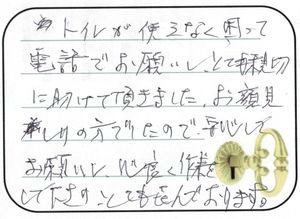 トイレが使えなく困って
電話でお願いし、とても親切
に助けて頂きました。お顔見
しりの方でしたので、安心して
お願いし、心良く作業
して下さりとても喜んでおります。